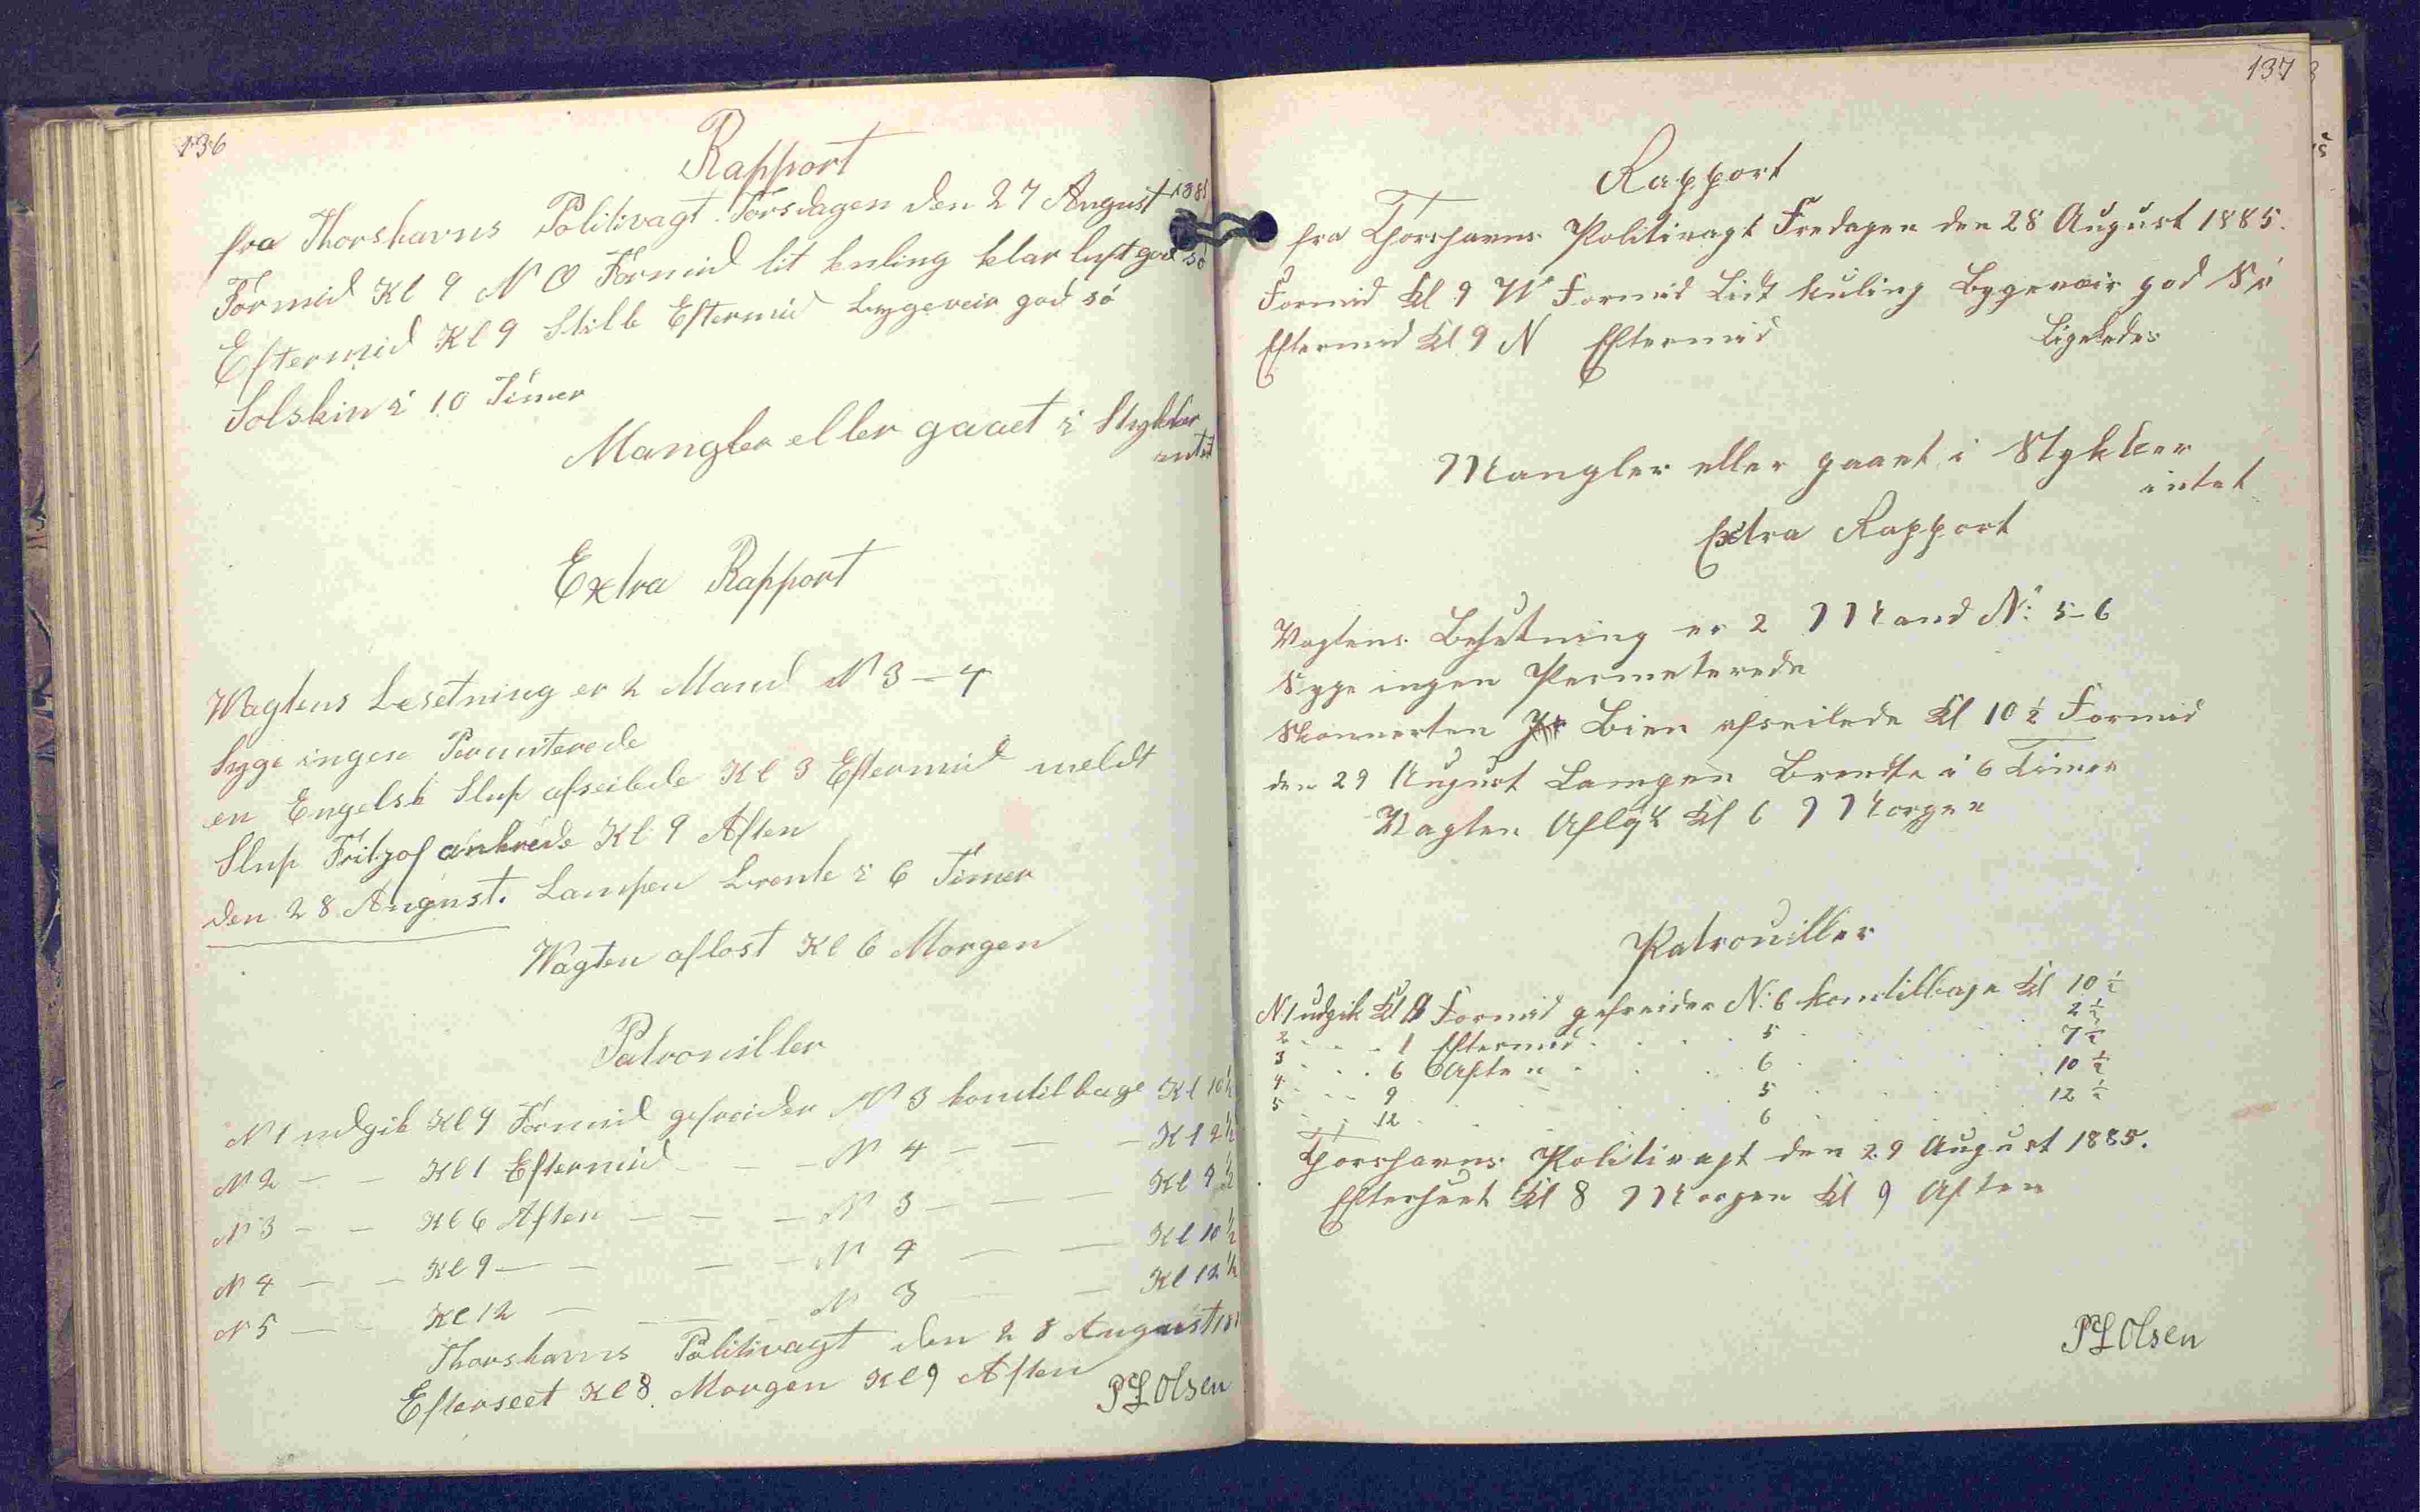 136
Rapport
fra Thorshavns Politivagt Torsdagen den 27 August 188
Formid Kl 9 N O Formid lit kuling klar luft god só
Eftermid Kl 9 Stille Eftermid bygeveir god só
Solskin i 10 Timer
Mangler eller gaaet i Stykker
intet
Extra Rapport
Wagtens besetning er 2 Mand N 3 – 4
Syge ingen Permiterede
en Engelsk Slup afseilede Kl 3 Eftermid meldt
Slup Fritjof ankrede Kl 9 Aften
den 28 August. Lampen brente i 6 Timer
Wagten aflost Kl 6 Morgen
Patrouiller
N 1 udgik Kl 9 Formid gefreider N 3 komtilbage Kl 10½
N 2 – – Kl 1 Eftermid – – – N 4 – – – Kl 2½
N 3 – – Kl 6 Aften – – – N 3 – – – Kl 7½
N 4 – – Kl 9 – – – – N 4 – – Kl 10½
N 5 – – Kl 12 – – – N 3 – – Kl 12½
Thorshavns Politivagt den 28 August 188
Efterseet Kl 8 Morgen Kl 9 Aften
P L Olsen
137
Rapport
fra Thorshavns Politivagt Fredagen den 28 August 1885.
Formid Kl 9 W Formid Lidt kuling Bygevær god Sö
Eftermid Kl 9 N Eftermid Ligeledes
Mangler eller gaaet i Stykker
intet
Extra Rapport
Vagtens Besetning er 2 Mand N: 5–6
Syge ingen Permeterede
Skonnerten Bien afseilede Kl 10½ Formid
den 29 August Lampen Brendte i 6 Timer
Vagten Afløst Kl 6 Morgen
Patrouiller
N 1 udgik Kl 9 Formid gefreider N: 6 komtilbage Kl 10½
2 . . . 1 Eftermid . . . . 5 . . . . 2½
3 . . . 6 Aften . . . . 6 . . . . 7½
4 . . . 9 . . . . 5 . . . . 10½
5 . . . 12 . . . . 6 . . . . 12½
Thorshavns Politivagt den 29 August 1885.
Efterseet Kl 8 Morgen Kl 9 Aften
P L Olsen